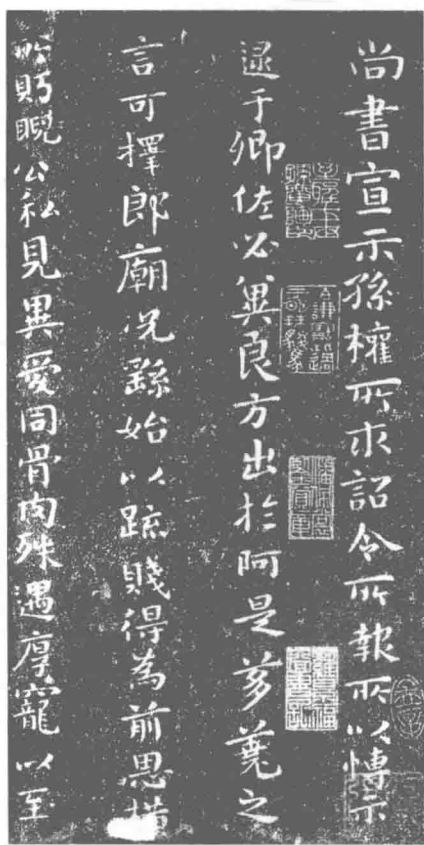 尚書宣示孫權所求詔令所報所以博示
逮于卿佐必冀良方出於阿是芻蕘之
言可擇郎廟况繇始以疏賤得為前恩横
所眄睨公私見異愛同骨肉殊遇厚寵以至